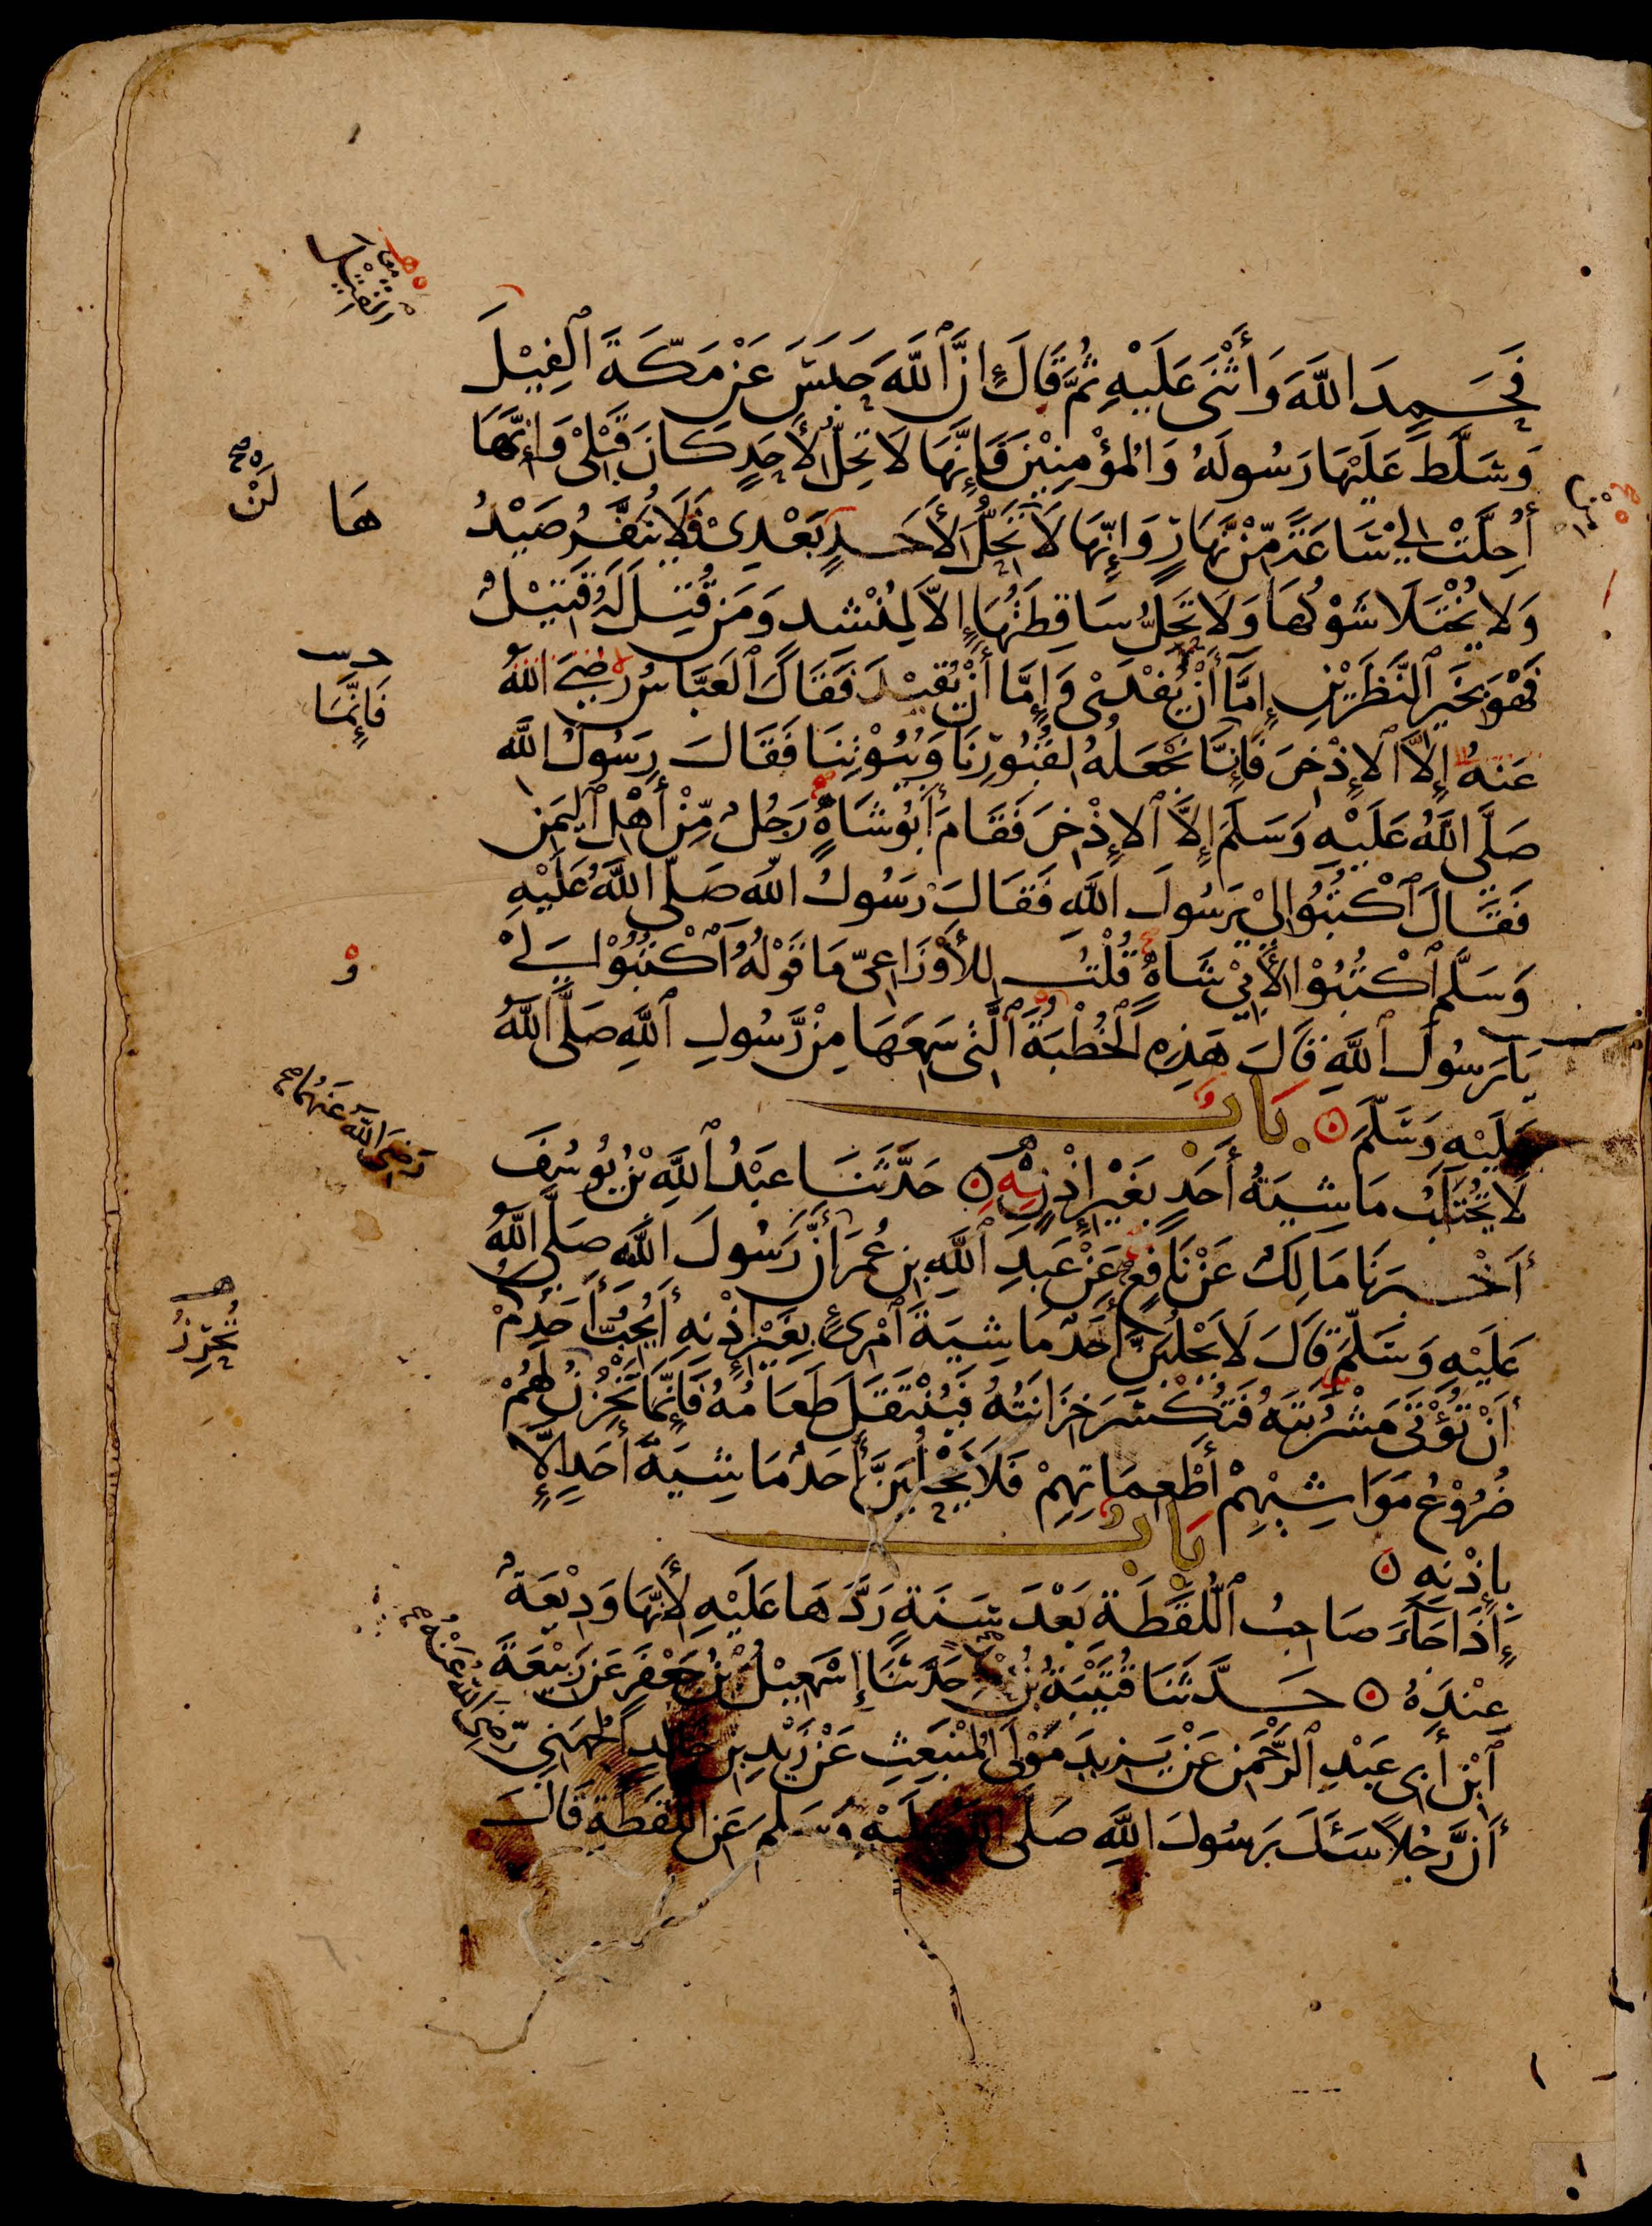 فَحَمِدَ اللَّهَ وَأَثْنَى عَلَيْهِ ثُمَّ قَالَ إِنَّ ٱللَّهَ حَبَسَ عَنْ مَكَّةَ ٱلْفِيْلَ
وَسَلَّطَ عَلَيْهَا رَسُولَهُ وَالْمُؤْمِنِيْنَ فَإِنَّهَا لَا تَحِلُّ لِأَحَدٍ كَانَ قَبْلِيْ وَإِنَّهَا
أُحِلَّتْ لِيْ سَاعَةً مِّنْ نَّهَارٍ وَإِنَّهَا لَا تَحِلُّ لِأَحَدٍ بَعْدِيْ فَلَا يُنَفَّرُ صَيْدُ
هَا
لَنْ صح
وَلَا يُخْتَلَا شَوْكُهَا وَلَا تَحِلُّ سَاقِطَتُهَا إِلَّا لِمُنْشِدٍ وَمَنْ قُتِلَ لَهُ قَتِيْلٌ
فَهْوَ بِخَيْرِ ٱلنَّظَرَيْنِ إِمَّا أَنْ يُفْدَى وَإِمَّا أَنْ يُقِيْدَ فَقَالَ ٱلْعَبَّاسُ رَضِيَ اللَّهُ
فَإِنَّمَا
عَنْهُ إِلَّا ٱلْإِذْخِرَ فَإِنَّا نَجْعَلُهُ لِقُبُوْرِنَا وَبُيُوْتِنَا فَقَالَ رَسُولُ اللَّهِ
صَلَّى اللَّهُ عَلَيْهِ وَسَلَّمَ إِلَّا ٱلْإِذْخِرَ فَقَامَ أَبُو شَاهٍ رَجُلٌ مِّنْ أَهْلِ ٱلْيَمَنِ
فَقَالَ ٱكْتُبُوْا لِيْ يَرَسُولَ اللَّهِ فَقَالَ رَسُولُ اللَّهِ صَلَّى اللَّهُ عَلَيْهِ
وَسَلَّمَ ٱكْتُبُوْا لِأَبِيْ شَاهٍ قُلْتُ لِلْأَوْزَاعِيِّ مَا قَوْلُهُ ٱكْتُبُوْا لِيْ
يَا رَسُولَ ٱللَّهِ قَالَ هَذِهِ ٱلْخُطْبَةَ ٱلَّتِي سَمِعَهَا مِنْ رَّسُولِ ٱللَّهِ صَلَّى ٱللَّهُ
عَلَيْهِ وَسَلَّمَ ۝ بَابٌ
لَا تُحْتَلَبُ مَاشِيَةُ أَحَدٍ بِغَيْرِ إِذْنِهِ ۝ حَدَّثَنَا عَبْدُ ٱللَّهِ بْنُ يُوسُفَ
رَضِيَ اللَّهُ عَنْهُمَا صح
أَخْبَرَنَا مَالِكٌ عَنْ نَافِعٍ عَنْ عَبْدِ ٱللَّهِ بْنِ عُمَرَ أَنَّ رَسُولَ اللَّهِ صَلَّى اللَّهُ
عَلَيْهِ وَسَلَّمَ قَالَ لَا يَحْلُبَنَّ أَحَدٌ مَاشِيَةَ ٱمْرِئٍ بِغَيْرِ إِذْنِهِ أَيُحِبُّ أَحَدُكُمْ
أَنْ تُؤْتَى مَشْرُبَتُهُ فَتُكْسَرَ خِزَانَتُهُ فَيُنْتَقَلَ طَعَامُهُ فَإِنَّمَا تَخْزُنُ لَهُمْ
تُحْرِزُ
ضُرُوْعُ مَوَاشِيْهِمْ أَطْعِمَاتِهِمْ فَلَا يَحْلُبَنَّ أَحَدٌ مَاشِيَةَ أَحَدٍ إِلَّا
بِإِذْنِهِ ۝ بَابٌ
إِذَا جَاءَ صَاحِبُ ٱللُّقَطَةِ بَعْدَ سَنَةٍ رَدَّهَا عَلَيْهِ لِأَنَّهَا وَدِيْعَةٌ
عِنْدَهُ ۝ حَدَّثَنَا قُتَيْبَةُ حَدَّثَنَا إِسْمَعِيْلُ بْنُ جَعْفَرٍ عَنْ رَبِيْعَةَ
ٱبْنِ أَبِي عَبْدِ ٱلرَّحْمَنِ عَنْ يَزِيدَ مَوْلَى الْمُنْبَعِثِ عَنْ زَيْدِ بْنِ خَالِدٍ الْجُهَنِيِّ
رَضِيَ اللَّهُ عَنْهُ صح
أَنَّ رَجُلًا سَئَلَ رَسُولَ اللَّهِ صَلَّى اللَّهُ عَلَيْهِ وَسَلَّمَ عَنِ اللُّقَطَةِ قَالَ